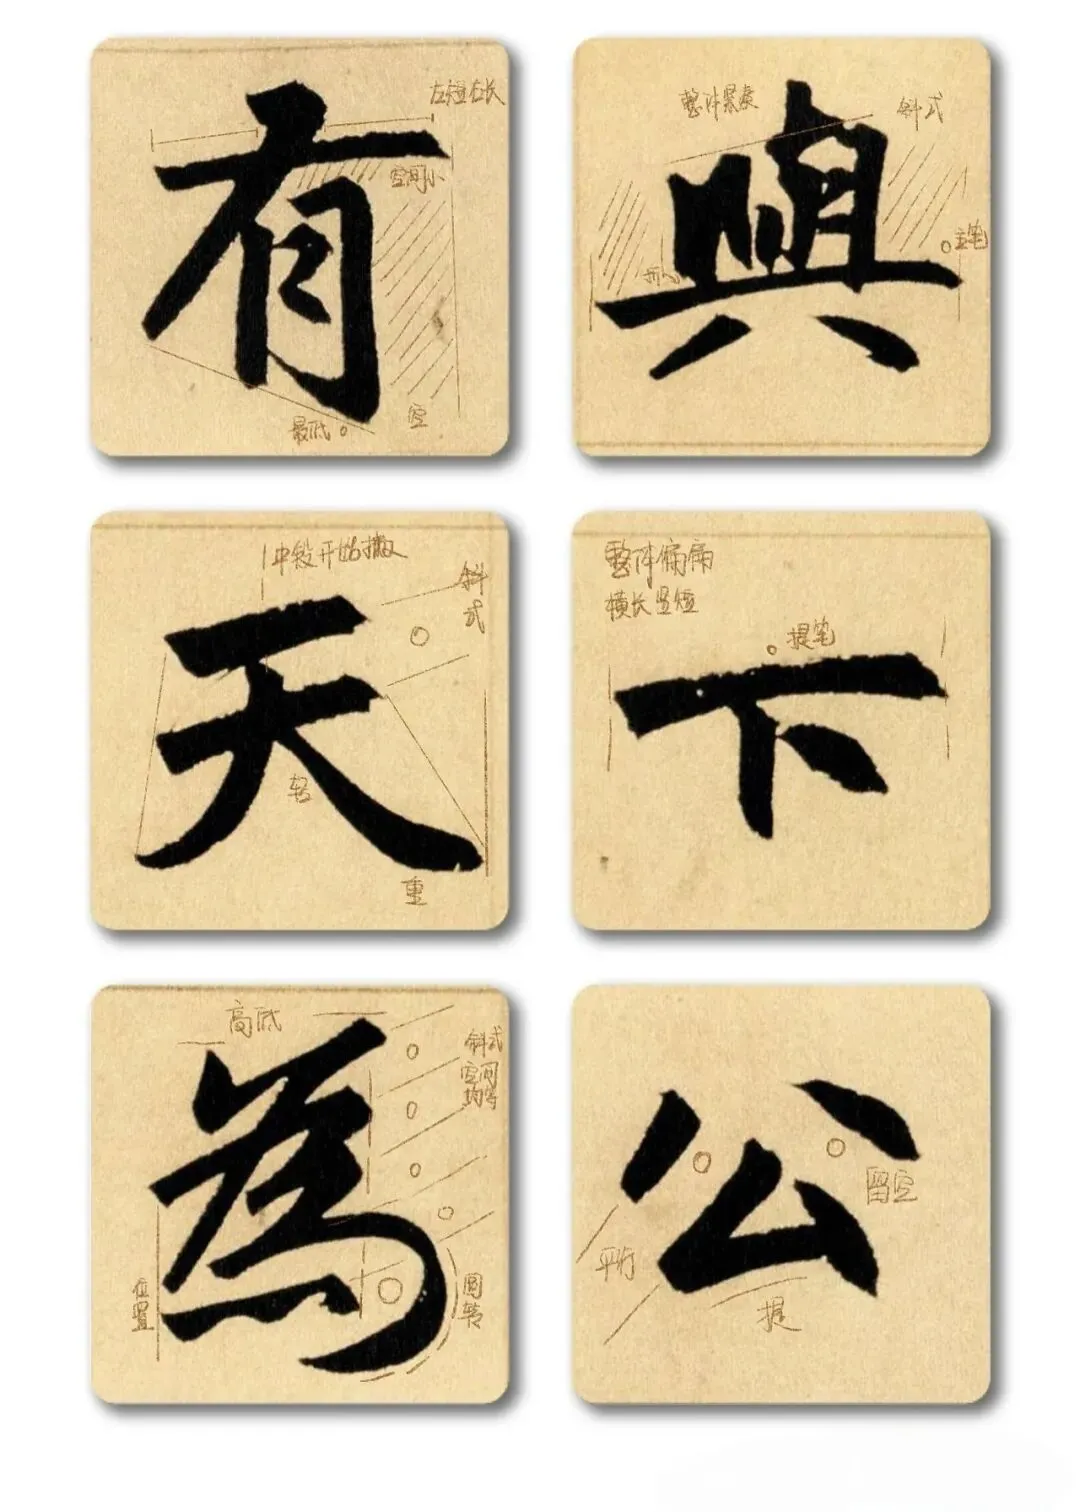 有
左短右长
空间小
空
最低
與
整体紧凑
斜式
主笔
天
中段开始撇
斜式
轻
重
下
整体偏扁
横长竖短
提笔
為
高低
斜式
空间
均等
位置
圆转
公
留空
平行
提